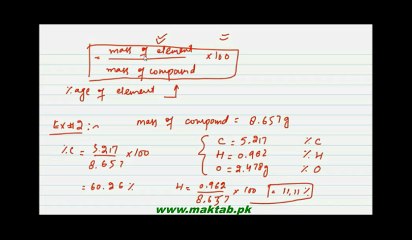 = mass of element / mass of compound × 100
%age of element
Ex#2 :-
mass of compound = 8.657g
C = 5.217 %C
H = 0.962 %H
O = 2.478g %O
%C = 5.217 / 8.657 × 100
= 60.26%
H = 0.962 / 8.657 × 100 = 11.11%
www.maktab.pk